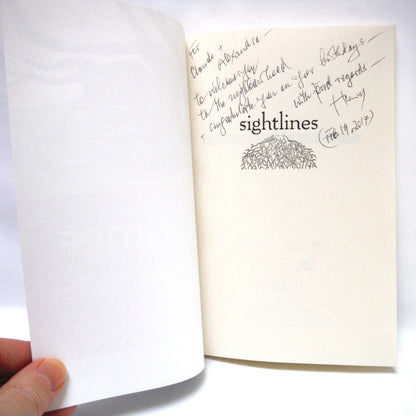 For
Claude +
Alexandra —
to welcome you
to the neighbourhood
+ congratulate you on your birthdays —
with kind regards —
Henry
sightlines
(Feb 19, 2017)